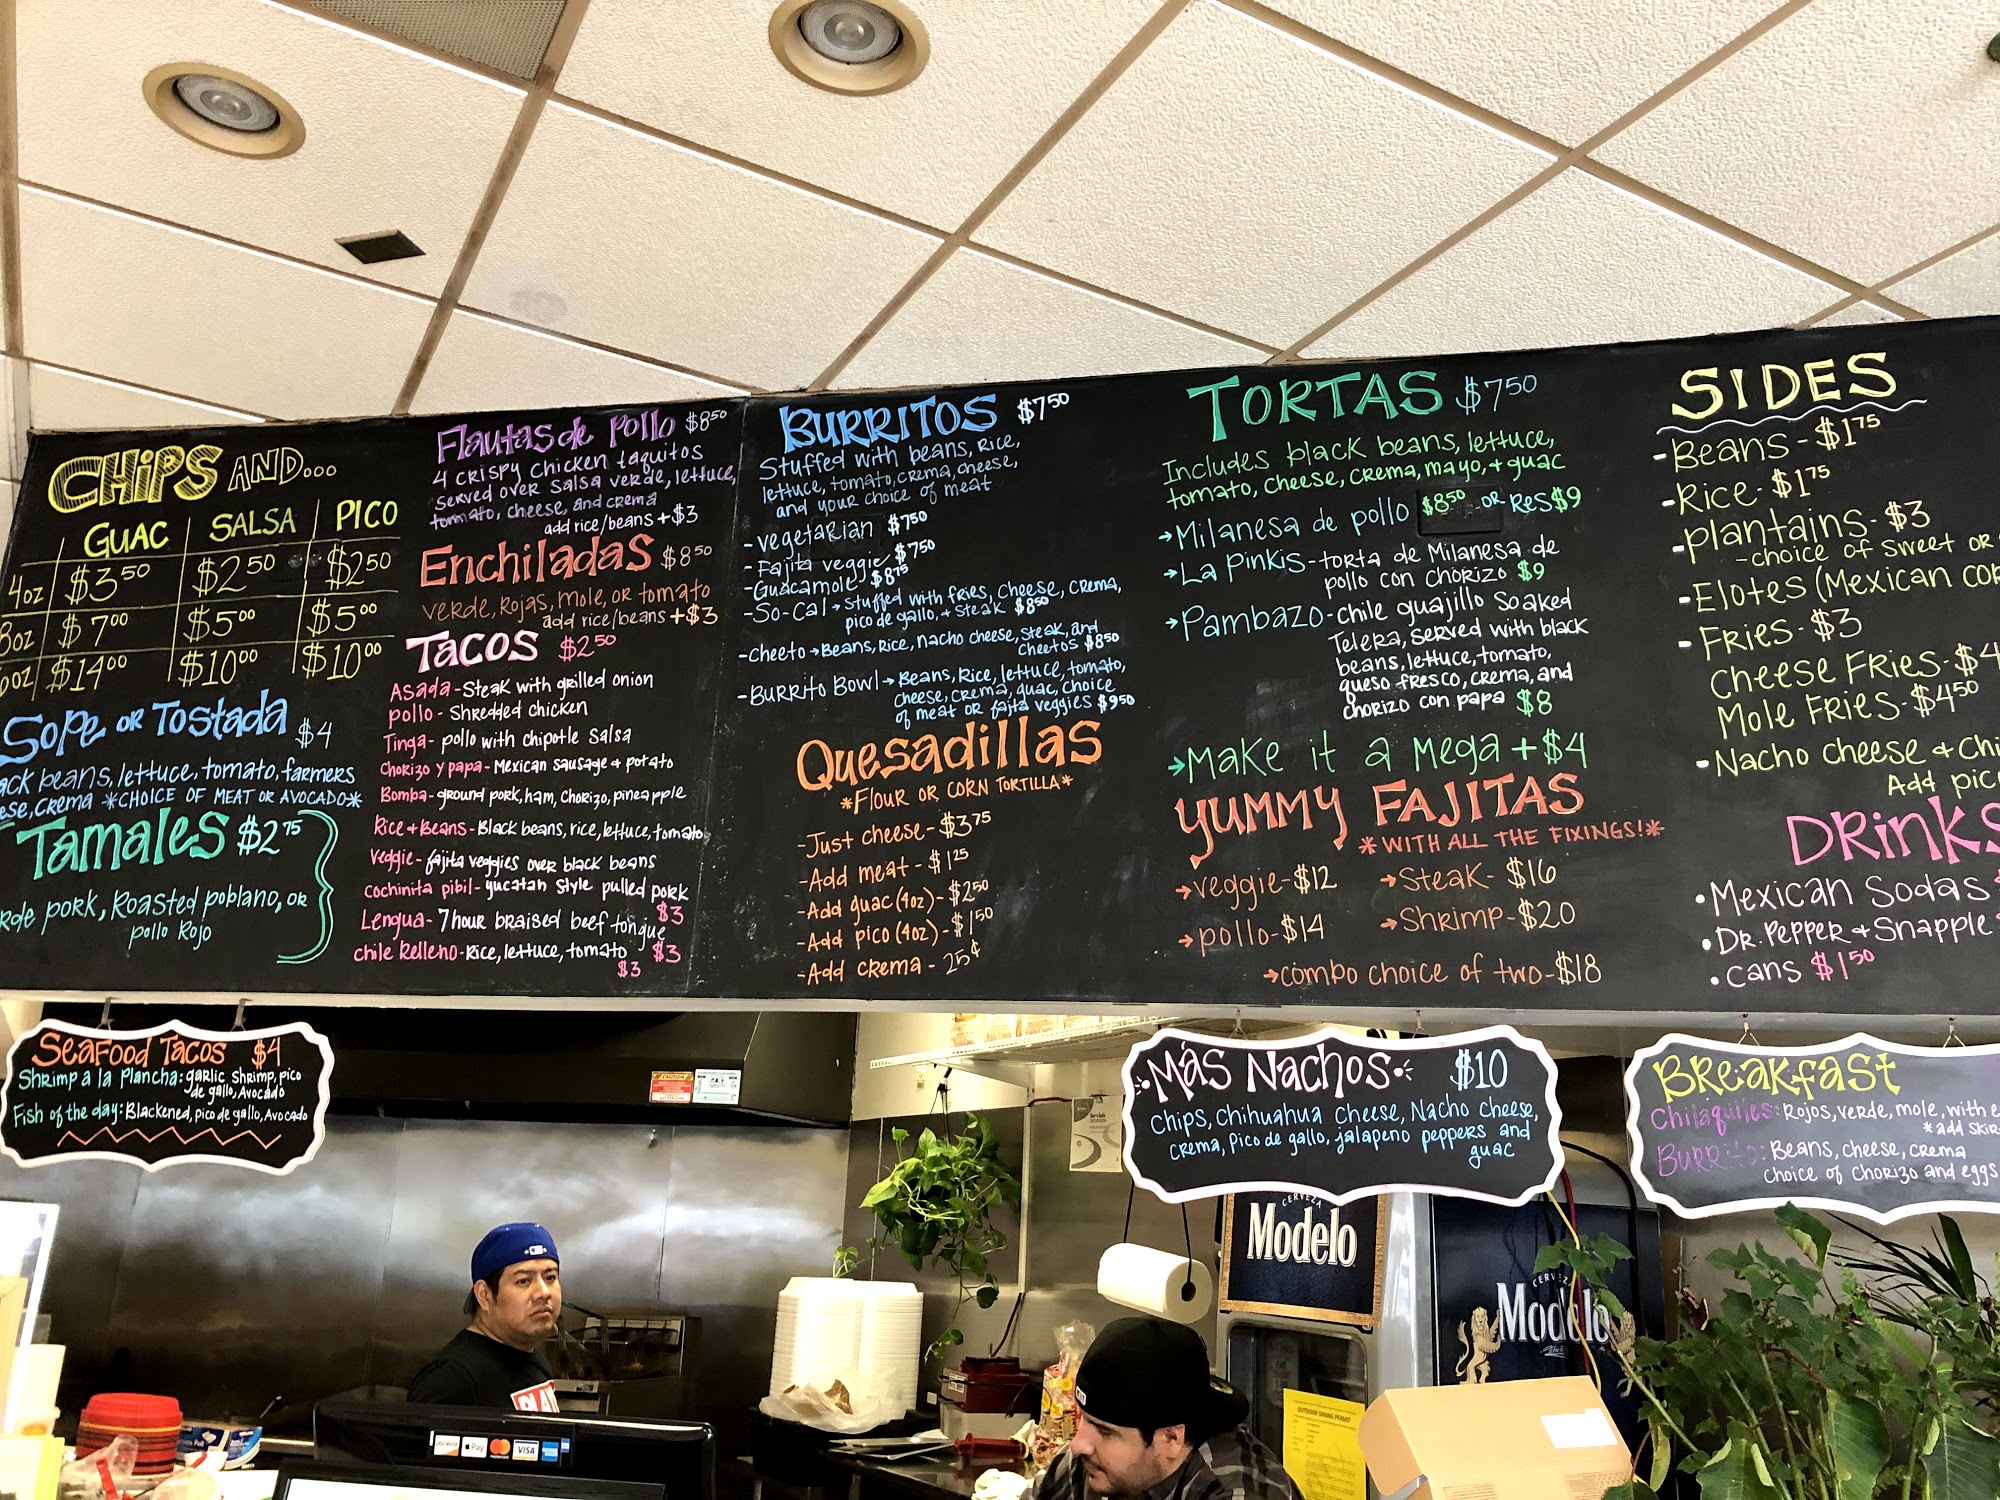 CHIPS AND...
GUAC SALSA PICO
4oz $3.50 $2.50 $2.50
8oz $7.00 $5.00 $5.00
oz $14.00 $10.00 $10.00
SOPE OR TOSTADA $4
beans, lettuce, tomato, farmers
crema *CHOICE OF MEAT OR AVOCADO*
TAMALES $2.75
pork, Roasted poblano, or
pollo Rojo
Flautas de Pollo $8.50
4 crispy chicken taquitos
served over salsa verde, lettuce,
tomato, cheese, and crema
add rice/beans +$3
Enchiladas $8.50
verde, rojas, mole, or tomato
add rice/beans +$3
TACOS $2.50
Asada - Steak with grilled onion
pollo - Shredded chicken
Tinga - pollo with chipotle salsa
Chorizo y papa - Mexican sausage + potato
Bomba - ground pork, ham, chorizo, pineapple
Rice + Beans - Black beans, rice, lettuce, tomato
Veggie - fajita veggies over black beans
cochinita pibil - yucatan style pulled pork
$3
Lengua - 7 hour braised beef tongue
chile Relleno - Rice, lettuce, tomato $3
$3
BURRITOS $7.50
Stuffed with beans, Rice,
lettuce, tomato, crema, cheese,
and your choice of meat
- vegetarian $7.50
- Fajita veggies $7.50
- Guacamole $8.75
- So-Cal → stuffed with fries, cheese, crema,
pico de gallo, + steak $8.50
- Cheeto → Beans, Rice, nacho cheese, steak, and
cheetos $8.50
- Burrito Bowl → Beans, Rice, lettuce, tomato,
cheese, crema, guac, choice
of meat or fajita veggies $9.50
Quesadillas
*FLOUR OR CORN TORTILLA*
- Just cheese - $3.75
- Add meat - $1.25
- Add guac (4oz) - $2.50
- Add pico (4oz) - $1.50
- Add crema - 25¢
TORTAS $7.50
Includes black beans, lettuce,
tomato, cheese, crema, mayo, + guac
→ Milanesa de pollo $8.50 OR Res $9
→ La Pinkis - torta de Milanesa de
pollo con chorizo $9
→ Pambazo - chile guajillo soaked
Telera, served with black
beans, lettuce, tomato,
queso fresco, crema, and
chorizo con papa $8
→ Make it a Mega + $4
YUMMY FAJITAS
*WITH ALL THE FIXINGS!*
→ veggie - $12 → Steak - $16
→ pollo - $14 → Shrimp - $20
→ combo choice of two - $18
SIDES
- Beans - $1.75
- Rice - $1.75
- plantains - $3
- choice of sweet or
- Elotes (Mexican
- Fries - $3
Cheese Fries -
Mole Fries - $4.50
- Nacho cheese +
Add
DRINKS
• Mexican Sodas
• Dr. Pepper + Snapple
• cans $1.50
Seafood Tacos $4
Shrimp a la Plancha: garlic shrimp, pico
de gallo, Avocado
Fish of the day: Blackened, pico de gallo, Avocado
MÁS NACHOS $10
Chips, Chihuahua cheese, Nacho cheese,
crema, pico de gallo, jalapeno peppers and
guac
Breakfast
Chilaquiles: Rojos, verde, mole, with
*add
Burrito: Beans, cheese, crema
choice of chorizo and eggs
CERVEZA
Modelo
Modelo
CAUTION
DISCOVER Pay mastercard VISA
OUTDOOR DINING PERMIT